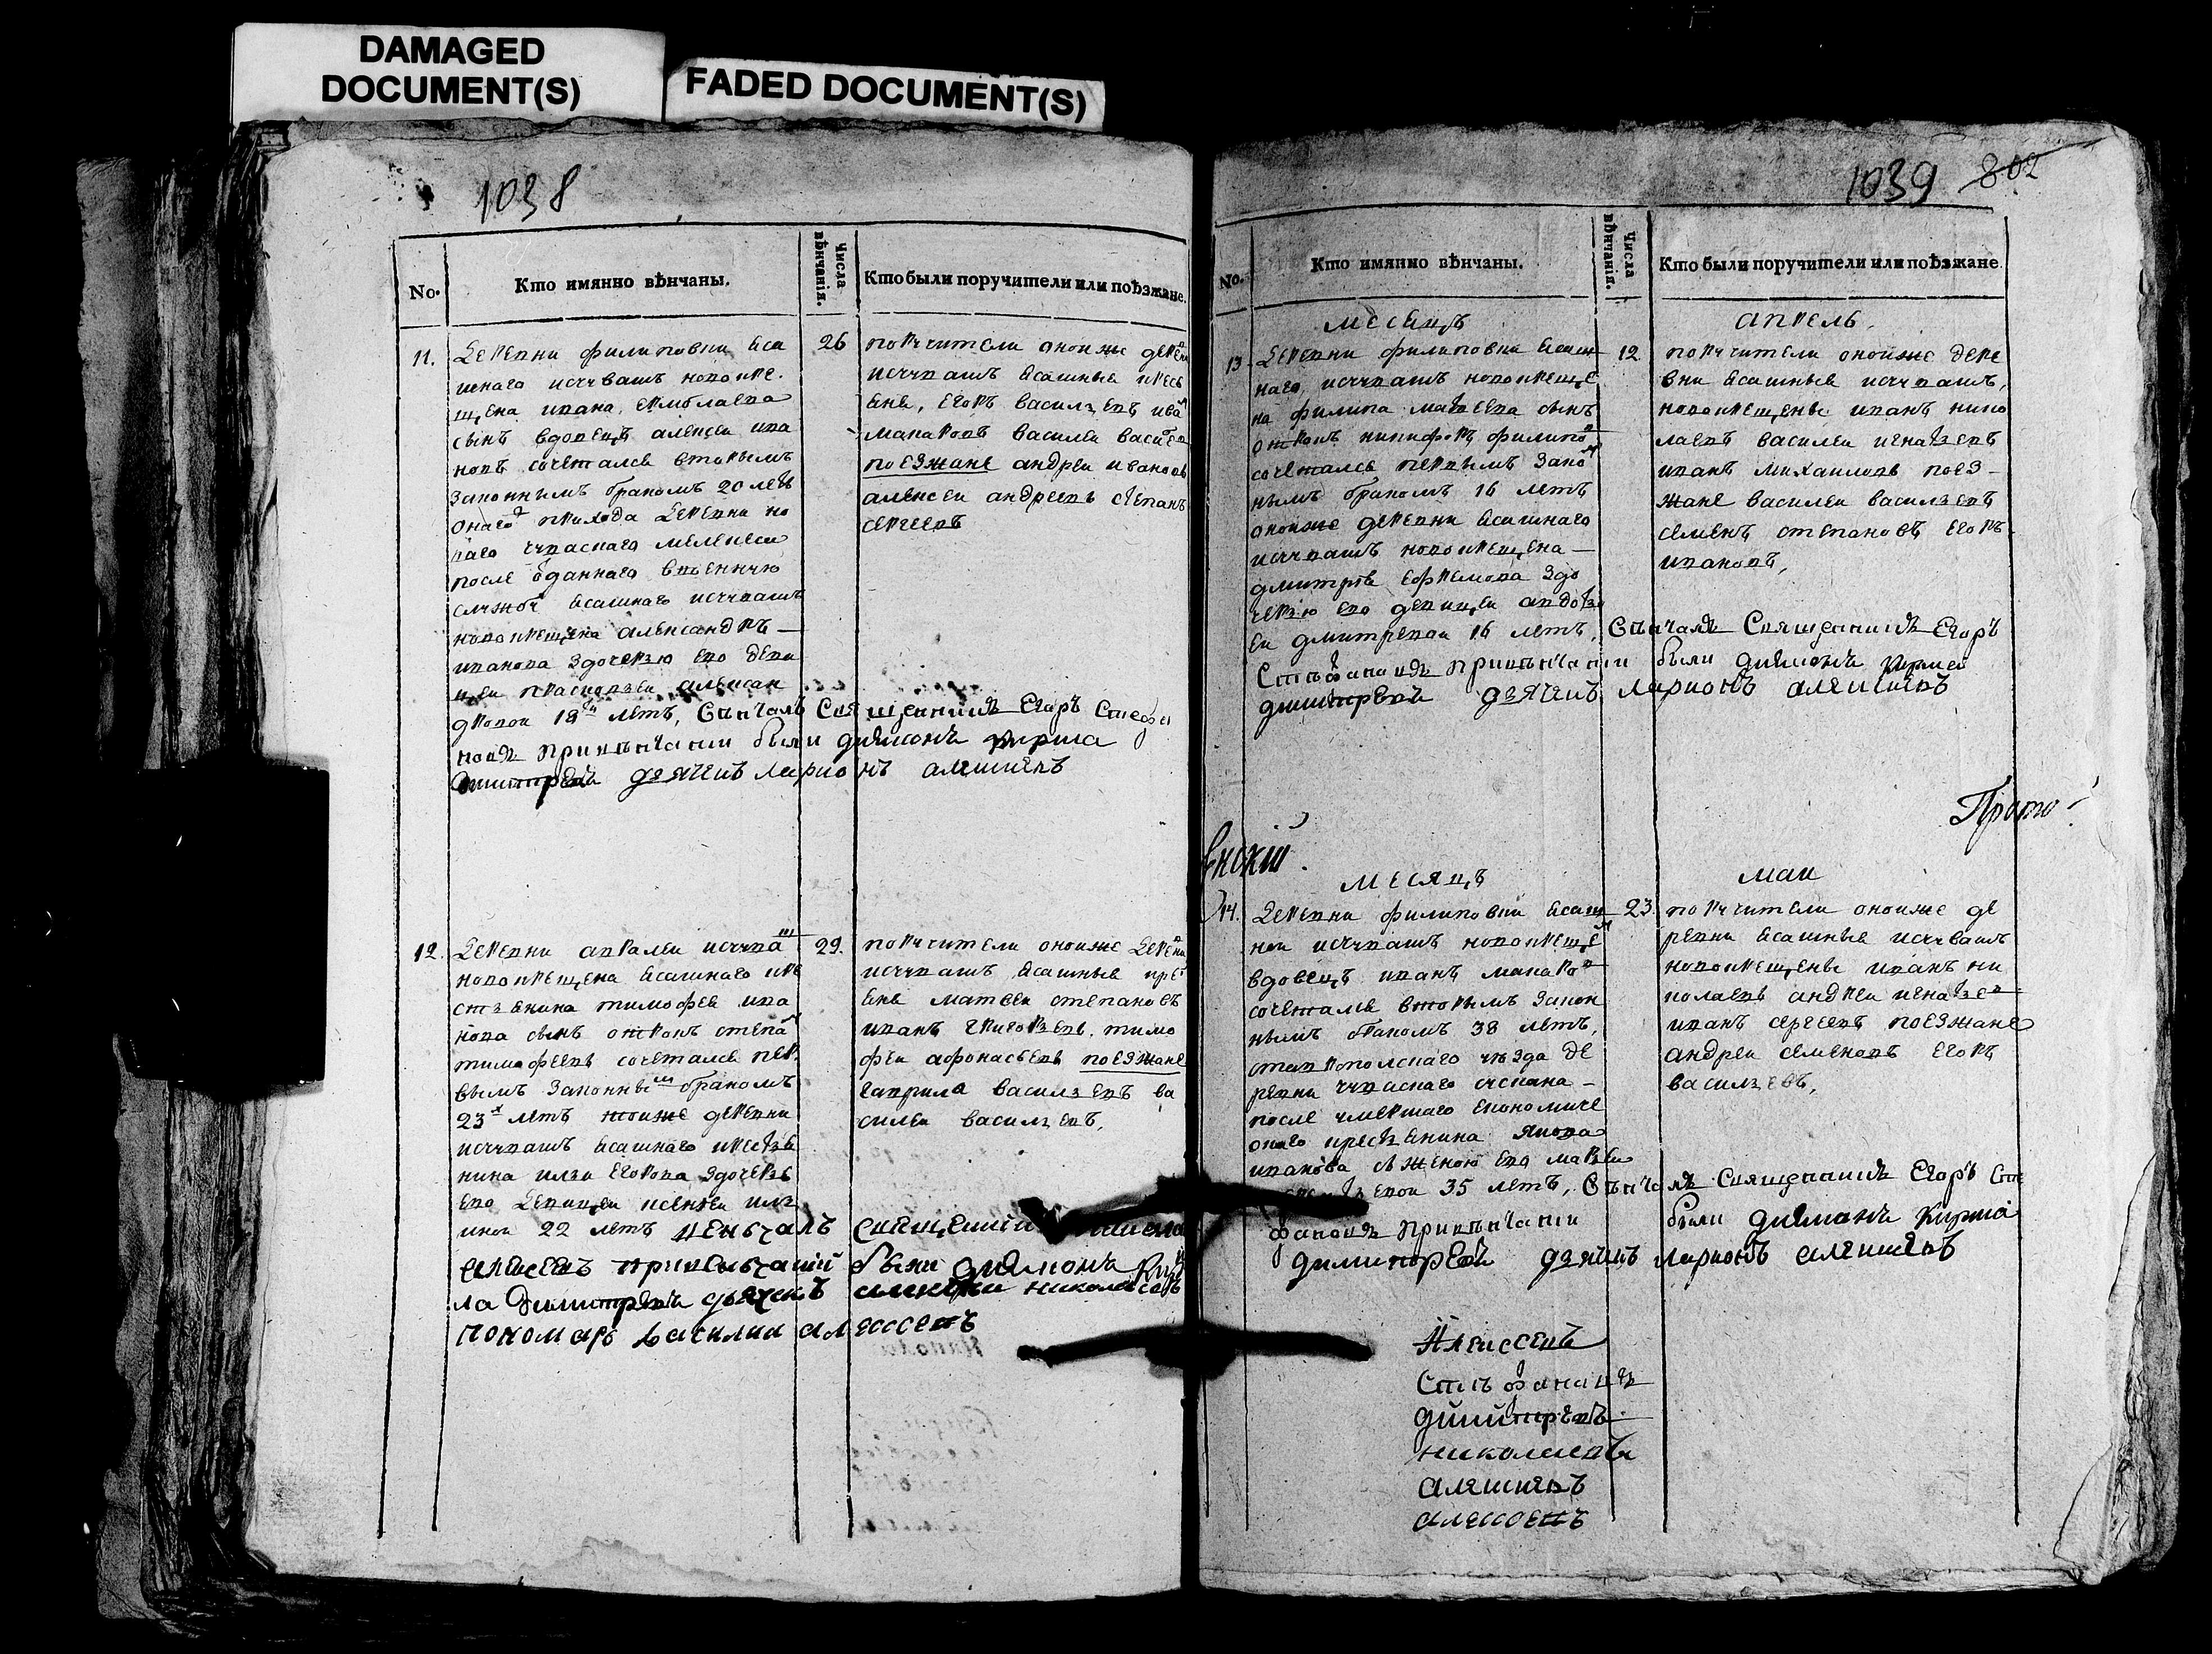 DAMAGED
DOCUMENT(S)
FADED DOCUMENT(S)
1038
No.
Кто имянно вѣнчаны.
Числа вѣнчанія.
Кто были поручители или поѣзжане.
11.
Деревни филиповки Яса
шнаго исчувашъ новокре.
щена ивана, ермолаева
сынъ вдовецъ алексеи ива
новъ сочетался вторымъ
законнымъ бракомъ 20 летъ
онаго прихода деревни но
ваго
после отданнаго в военную
службу Ясашнаго исчувашъ
новокрещена александръ
иванова здочерью ево деви
цеи алексан
дровои 18 летъ, Венчалъ Священникъ Егоръ Стефа
новъ При венчании были дияконъ кирила
димитревъ дьячекъ ларионъ алексиевъ
26
поручители оноиже деревни
исчувашъ Ясашныя кресь
яне, Егоръ васильевъ ива
макаровъ василеи васильев
поезжане андреи ивановъ
алексеи андреевъ степанъ
сергеевъ
12.
Деревни исчуваш
новокрещена Ясашнаго кре
стьянина тимофея ива
нова сынъ отрокъ степан
тимофеевъ сочетался пер
вымъ законным бракомъ
23 летъ тоиже деревни
исчувашъ Ясашнаго крестья
нина ильи Егорова здочерью
ево девицеи ксеньеи иль
инои 22 летъ венчалъ священникъ
алексеевъ привенчании были дияконъ Кири
ла Димитревъ дьячекъ николаевъ
пономарь василии алексеевъ
29.
поручители оноиже деревни
исчувашъ Ясашныя крес
яне матвеи степановъ
иванъ григорьевъ. тимо
феи афонасьевъ поезжане
гаврила васильевъ ва
силеи васильевъ,
1039 802
No.
Кто имянно вѣнчаны.
Числа вѣнчанія.
Кто были поручители или поѣзжане.
месецъ апрель.
13.
Деревни филиповки Ясаш
наго исчувашъ новокреще
на филипа матвеева сынъ
отрокъ никифоръ филипов
сочетался первымъ закон
нымъ бракомъ 16 летъ
оноиже деревни Ясашнаго
исчувашъ новокрещена
дмитрия Ефремова здо
черью ево девицеи авдоть
еи дмитревои 16 летъ, Венчалъ Священникъ Егоръ
Стефановъ При венчании были дияконъ кирила
димитревъ дьячекъ ларионъ алексиевъ
12.
поручители оноиже дере
вни Ясашныя исчувашъ,
новокрещены иванъ нико
лаевъ василеи игнатьевъ
иванъ михаиловъ поез
жане василеи васильевъ
семенъ степановъ Егоръ
ивановъ,
Прото
вскій.
месяцъ маи
14.
Деревни филиповки Ясаш
нои исчувашъ новокрещен
вдовецъ иванъ макаров
сочетался вторымъ закон
нымъ бракомъ 38 летъ,
ставропольскаго уезда де
ревни
после умершаго Економиче
скаго крестьянина якова
иванова сженою ево марьеи
35 летъ, Венчалъ Священникъ Егоръ Сте
фановъ При венчании были дияконъ кирила
димитревъ дьячекъ ларионъ алексиевъ
23.
поручители оноиже де
ревни Ясашныя исчувашъ
новокрещены иванъ ни
колаевъ андреи игнатьев
иванъ сергеевъ поезжане
андреи семеновъ Егоръ
васильевъ,
Алексеевъ
Стефановъ
димитревъ
николаевъ
алексиевъ
алексеевъ